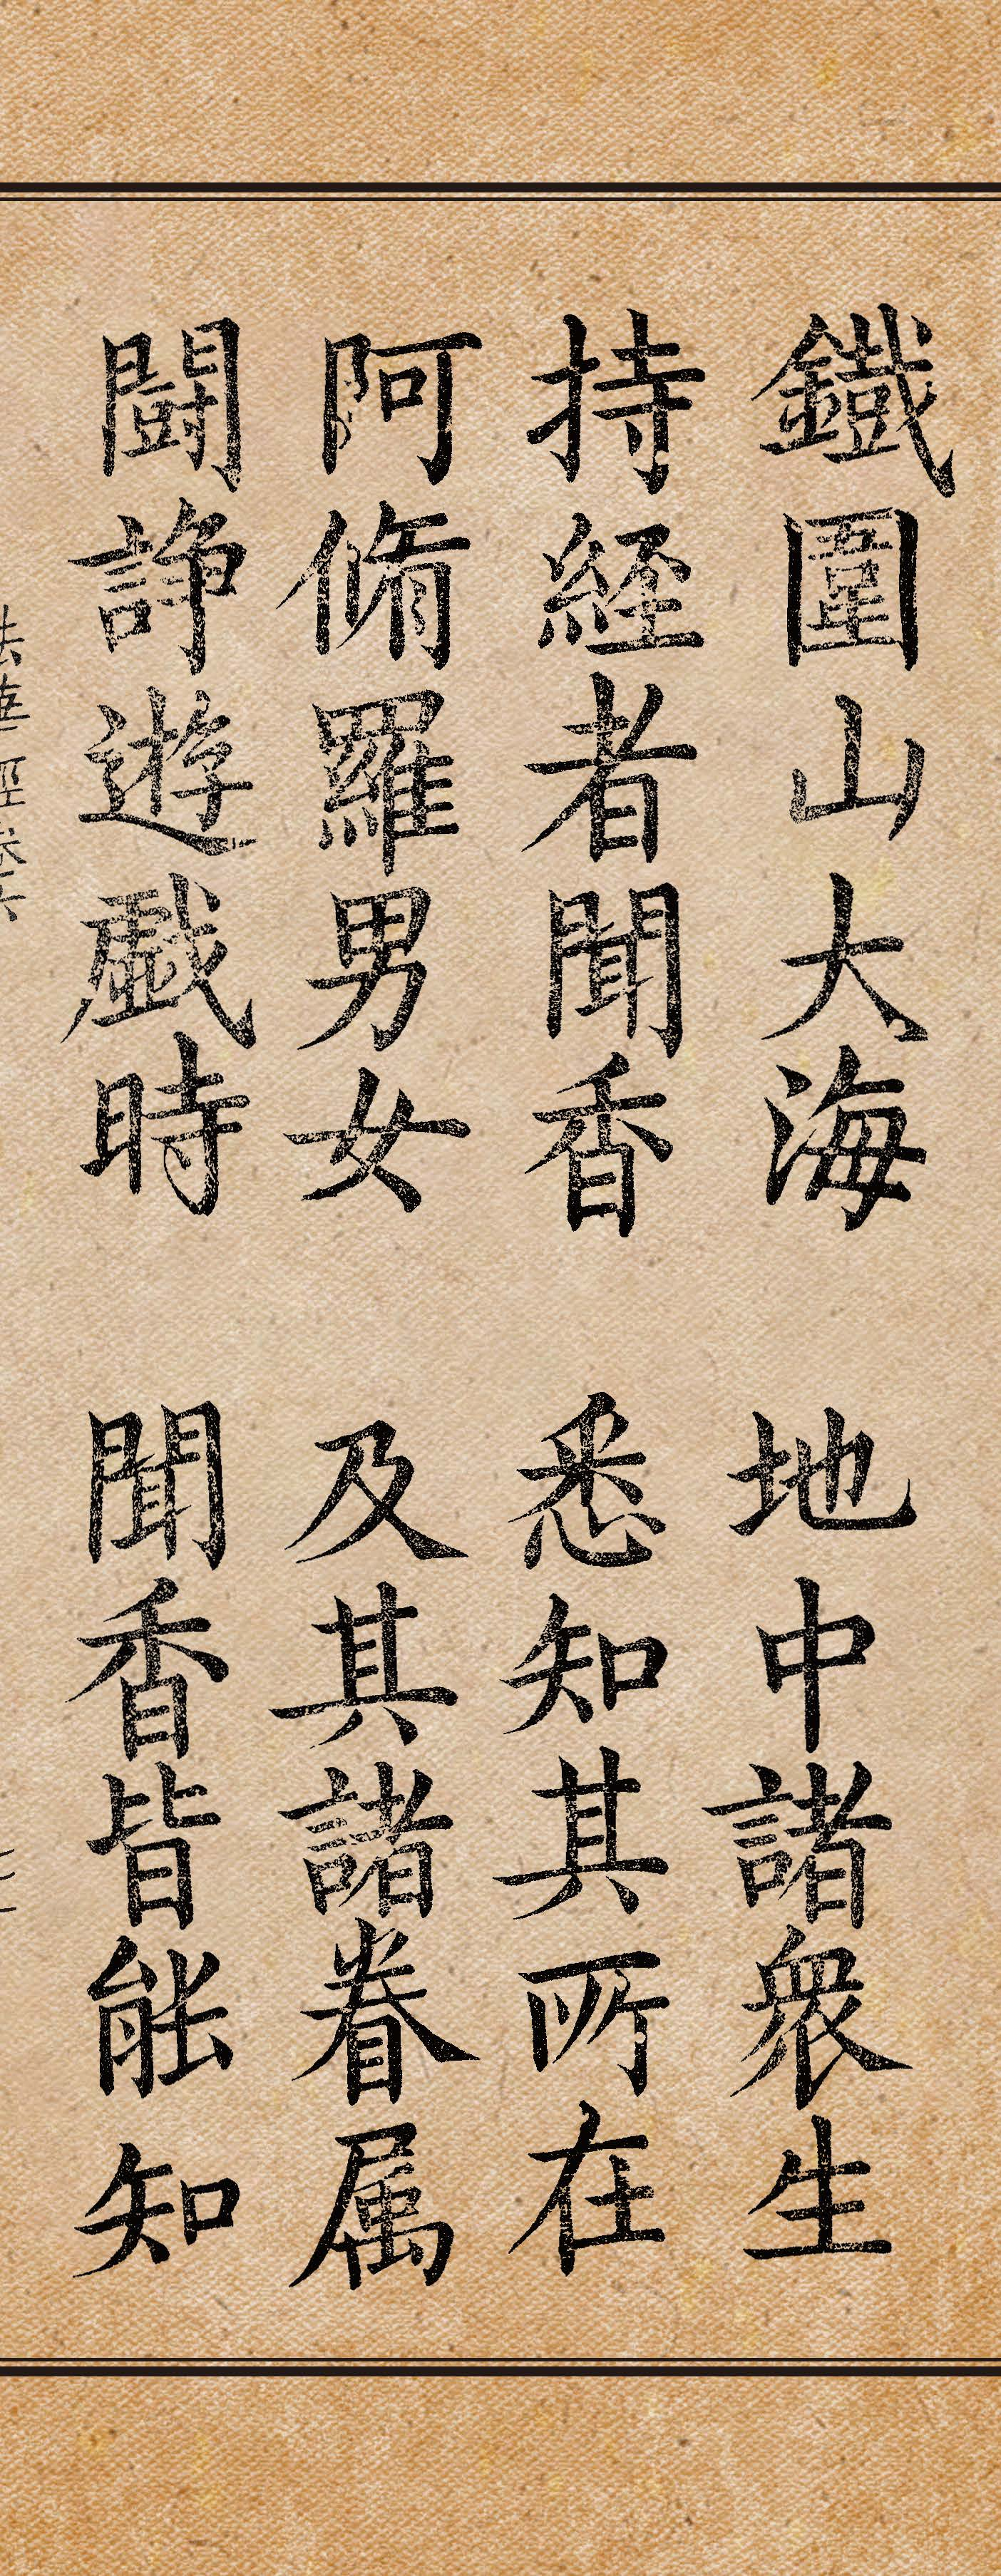 鐵圍山大海 地中諸衆生
持經者聞香 悉知其所在
阿脩羅男女 及其諸眷属
鬪諍遊戲時 聞香皆能知
法華經卷六